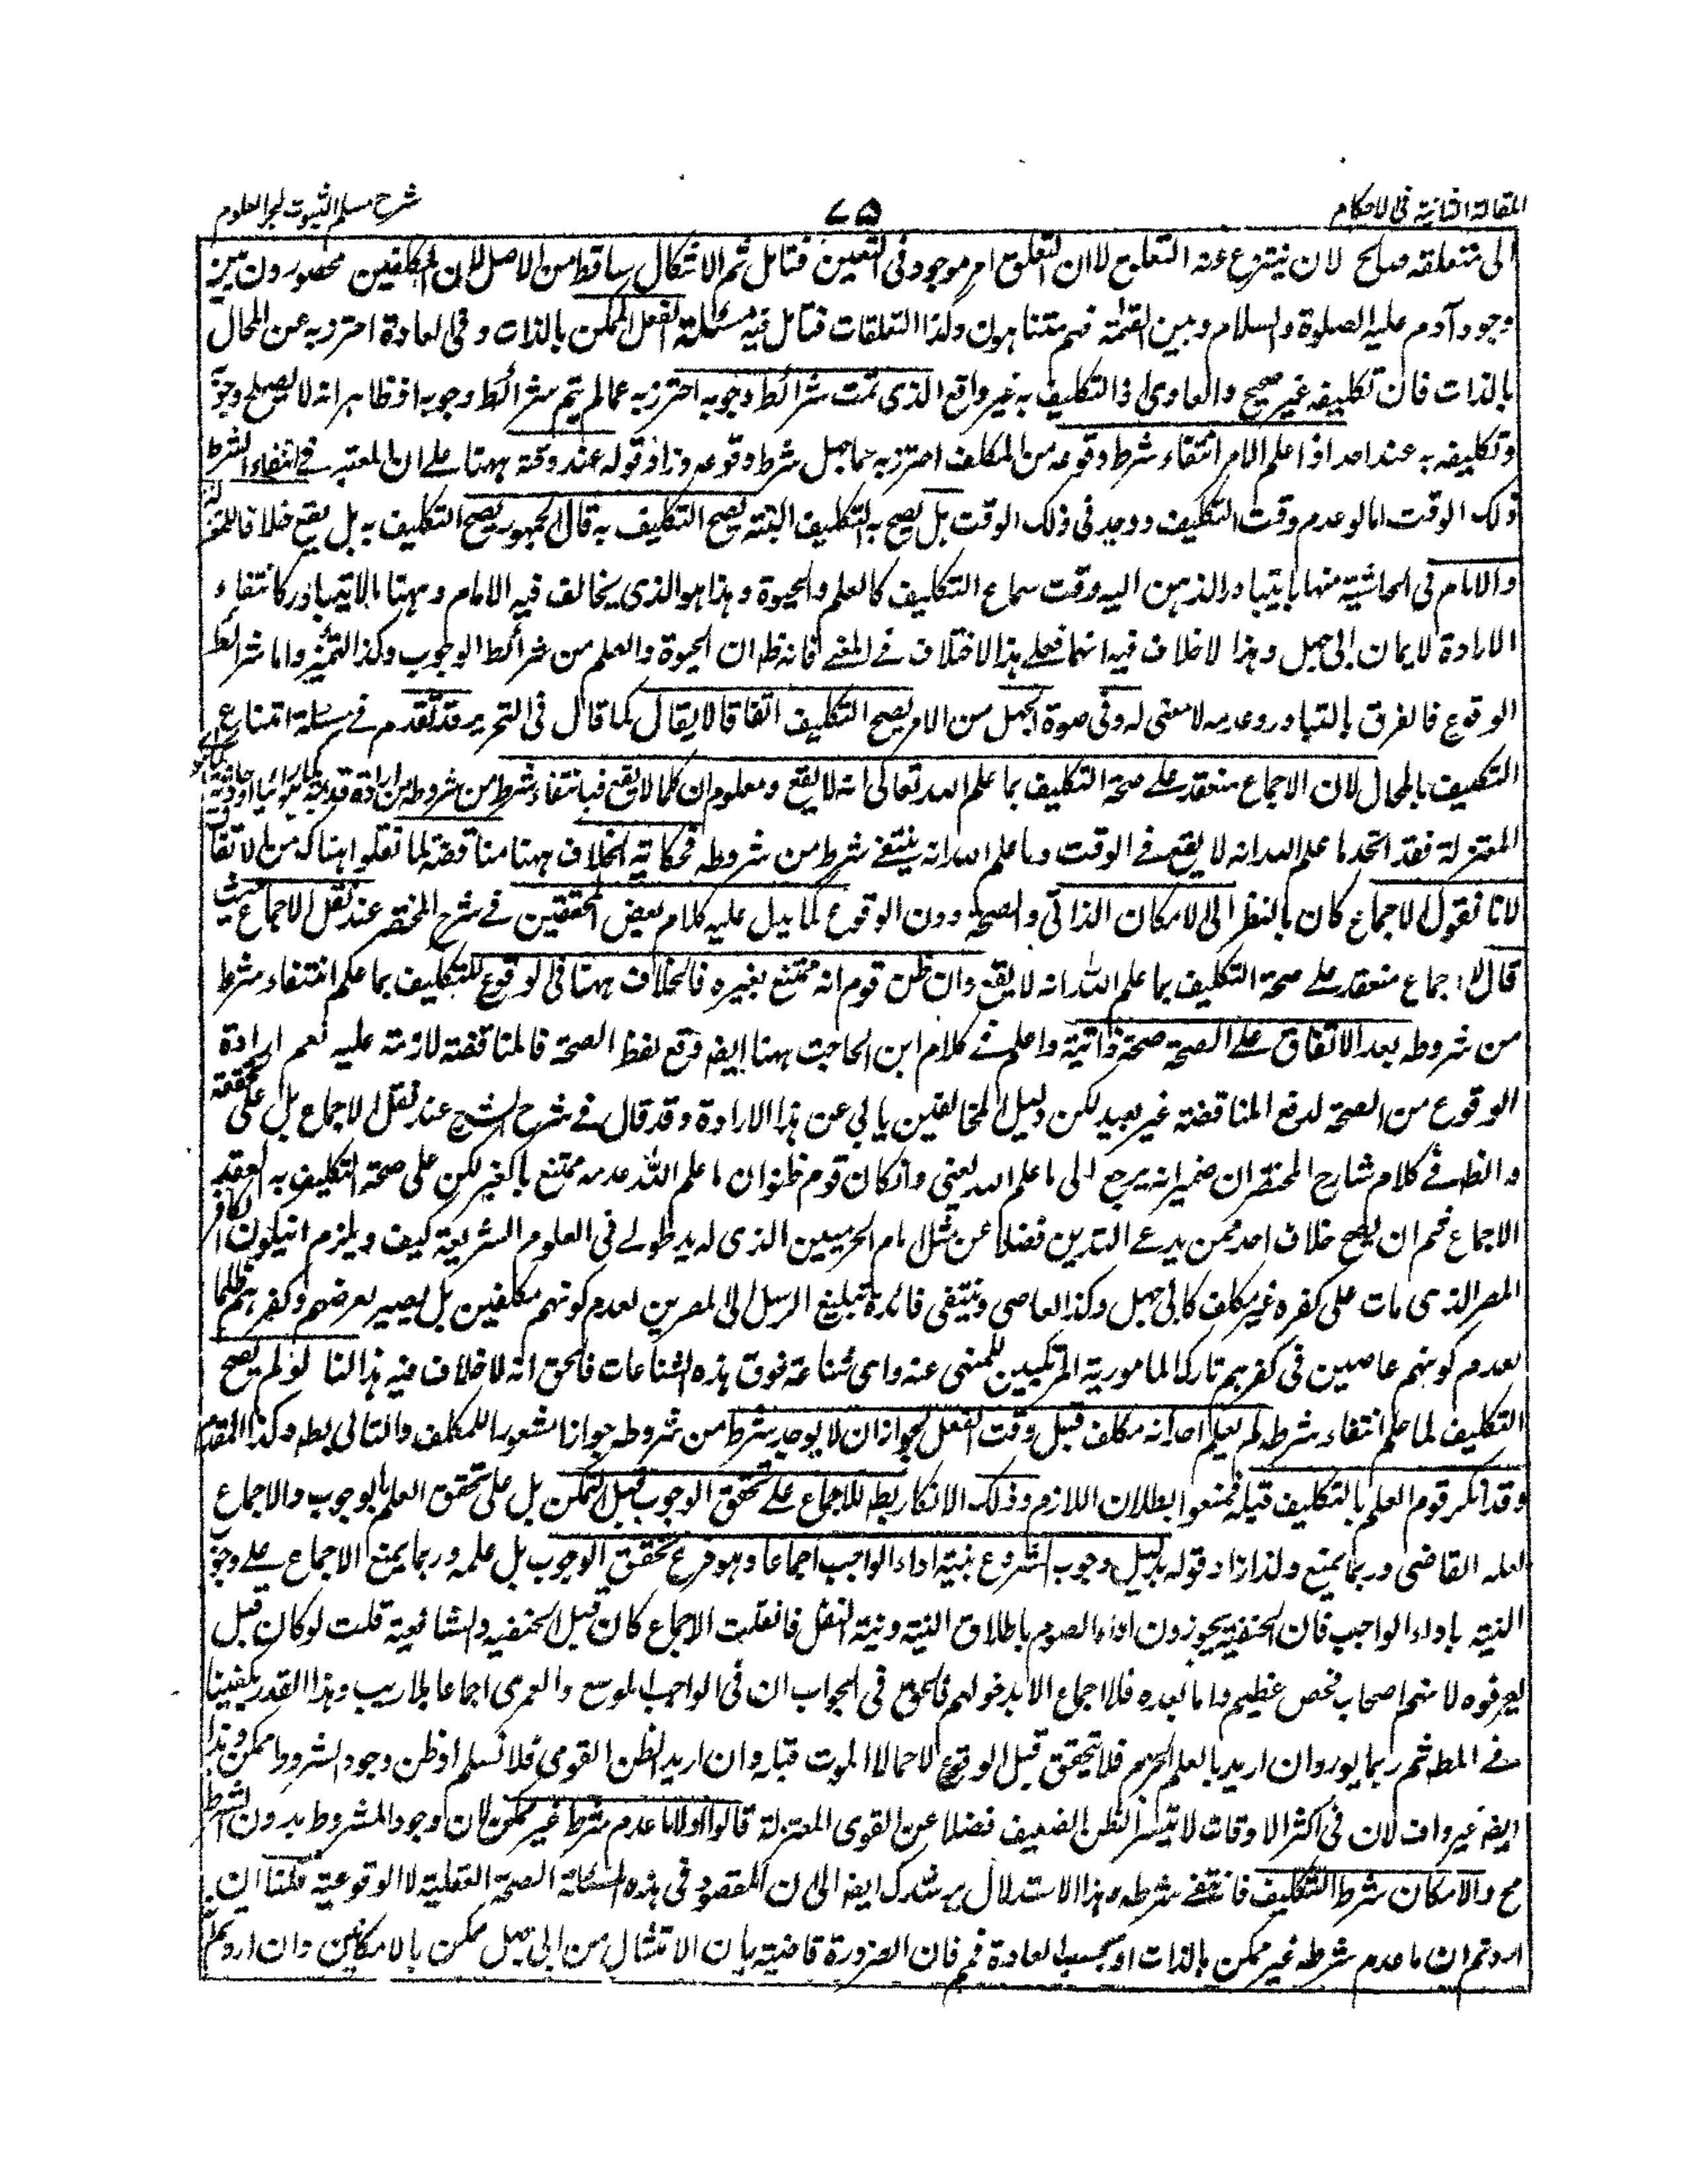 المقالة الثانية فى الاحكام
٧٥
شرح مسلم الثبوت لبحر العلوم
الى متعلقه صالح لان ينتزع عنه التعلق لا ان التعلق امر موجود فى التعين فتامل ثم الاشكال ساقط من الاصل لان المكلفين محصورون بين
وجود آدم عليه الصلوة والسلام وبين القيمة فهم متناهون ولذا التعلقات فتامل فيه مسئلة الفعل الممكن بالذات و فى العادة احترز به عن المحال
بالذات فان تكليفه غير صحيح والعادى اذ التكليف به غير واقع الذى تمت شرائط وجوبه احترز به عما لم يتم شرائط وجوبه اذ ظاهر انه لا يصلح وجوبه
وتكليفه به عند احد اذا علم الامر انتفاء شرط وقوعه من المكلف احترز به عما جهل شرط وقوعه وزاد قوله عند وقته ههنا على ان المعتبر فى انتفاء الشرط
ذلك الوقت اما لو عدم وقت التكليف ووجد فى ذلك الوقت بل يصح به التكليف البتة يصح التكليف به قال الجمهور يصح التكليف به بل يقع خلافا للمعتزلة
والامام فى الحاشية منها ما يتبادر الذهن اليه وقت سماع التكليف كالعلم والحيوة وهذا هو الذى يخالف فيه الامام ومنها ما لا يتبادر كانتفاء
الارادة لايمان ابى جهل وهذا لا خلاف فيه انما فعلى هذا الاختلاف فى المعنى فانه ظ ان الحيوة والعلم من شرائط الوجوب وكذا التميز واما شرائط
الوقوع فالفرق بالتبادر وعدمه لا معنى له وفى صورة الجهل من الامر يصح التكليف اتفاقا لا يقال كما قال فى التحرير قد تقدم فى مسئلة امتناع
التكليف بالمحال لان الاجماع منعقد على صحة التكليف بما علم الله تعالى انه لا يقع ومعلوم ان كلما لا يقع فبانتفاء شرط من شروطه من ارادة قديمة
المعتزلة فقد اتحد ما علم الله انه لا يقع فى الوقت وما علم الله انه ينتفى شرط من شروطه فحكاية الخلاف ههنا مناقضة لما نقلوا هناك من الاتفاق
لانا نقول الاجماع كان بالنظر الى الامكان الذاتى والصحة دون الوقوع كما يدل عليه كلام بعض المحققين فى شرح المختصر عند نقل الاجماع حيث
قال الاجماع منعقد على صحة التكليف بما علم الله انه لا يقع وان ظن قوم انه ممتنع بغيره فالخلاف ههنا فى الوقوع للتكليف بما علم انتفاء شرط
من شروطه بعد الاتفاق على الصحة صحة ذاتية واعلم فى كلام ابن الحاجب ههنا ايضه وقع لفظ الصحة فالمناقضة لازمة عليه نعم ارادة
الوقوع من الصحة لدفع المناقضة غير بعيد لكن دليل المخالفين يابى عن هذا الارادة وقد قال فى شرح الشرح عند نقل الاجماع بل على تحققه
والظ فى كلام شارح المختصر ان ضمير انه يرجع الى ما علم الله يعنى وان كان قوم ظنوا ان ما علم الله عدمه ممتنع بالغير لكن على صحة التكليف به انعقد
الاجماع فحم ان يصح خلاف احد ممن يدعى التدين فضلا عن مثل امام الحرمين الذى له يد طولى فى العلوم الشريعة كيف ويلزم ان يكون الكافر
المصر الذى مات على كفره غير مكلف كابى جهل وكذا العاصى وينتفى فائدة تبليغ الرسل الى المصرين لعدم كونهم مكلفين بل يصير
لعدم كونهم عاصين فى كفرهم تاركا للمامور به المرتكبين للمنهى عنه واى شناعة فوق هذه الشناعات فالحق انه لا خلاف فيه هذا لنا لو لم يصح
التكليف لما علم انتفاء شرطه لم يعلم احد انه مكلف قبل وقت الفعل لجواز ان لا يوجد شرط من شروطه جوازا مشعورا للمكلف والتالى بط وكذا المقدم
وقد انكر قوم العلم بالتكليف قبله فمنعوا بطلان اللازم وذلك الانكار بط للاجماع على تحقق الوجوب قبل التمكن بل على تحقق العلم بالوجوب والاجماع
لعله القاضى وربما يمنع ولذا زاد قوله بدليل وجوب الشروع بنية اداء الواجب اجماعا وهو فرع تحقق الوجوب بل علمه وربما يمنع الاجماع على وجوب
النية باداء الواجب فان الحنفية يجوزون اداء الصوم باطلاق النية ونية النفل فانقلت الاجماع كان قبل الحنفيه والشافعية قلت لو كان قبل
لعرفوه لانهم اصحاب فحص عظيم واما بعده فلا اجماع الا بدخولهم فالحق فى الجواب ان فى الواجب الموسع والعمرى اجماعا بلا ريب وهذا القدر يكفينا
فى المط ثم ربما يورد ان اريد بالعلم الجزم فلا يتحقق قبل الوقوع لاحتمال الموت قبله وان اريد الظن القوى فلا نسلم اذ ظن وجود الشروط ممكن وهذا
ايضه غير واف لان فى اكثر الاوقات لا يتيسر الظن الضعيف فضلا عن القوى المعتزلة قالوا اولا ما عدم شرطه غير ممكن لان وجود المشروط بدون الشرط
مح والامكان شرط التكليف فانتفى شرطه وهذا الاستدلال يرشدك ايضه الى ان المقصود فى هذه المسئلة الصحة العقلية لا الوقوعية قلنا ان
اردتم ان ما عدم شرطه غير ممكن بالذات او بحسب العادة فمم فان الضرورة قاضية بان الامتثال من ابى جهل ممكن بالامكانين وان اردتم